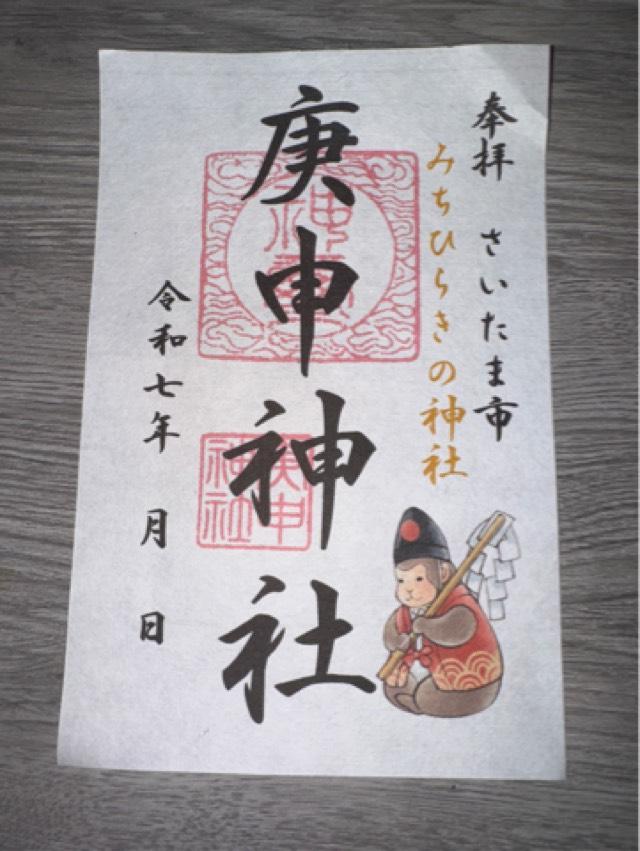 奉拝 さいたま市
みちひらきの神社
庚申神社
神璽
庚申
神社
令和七年 月 日